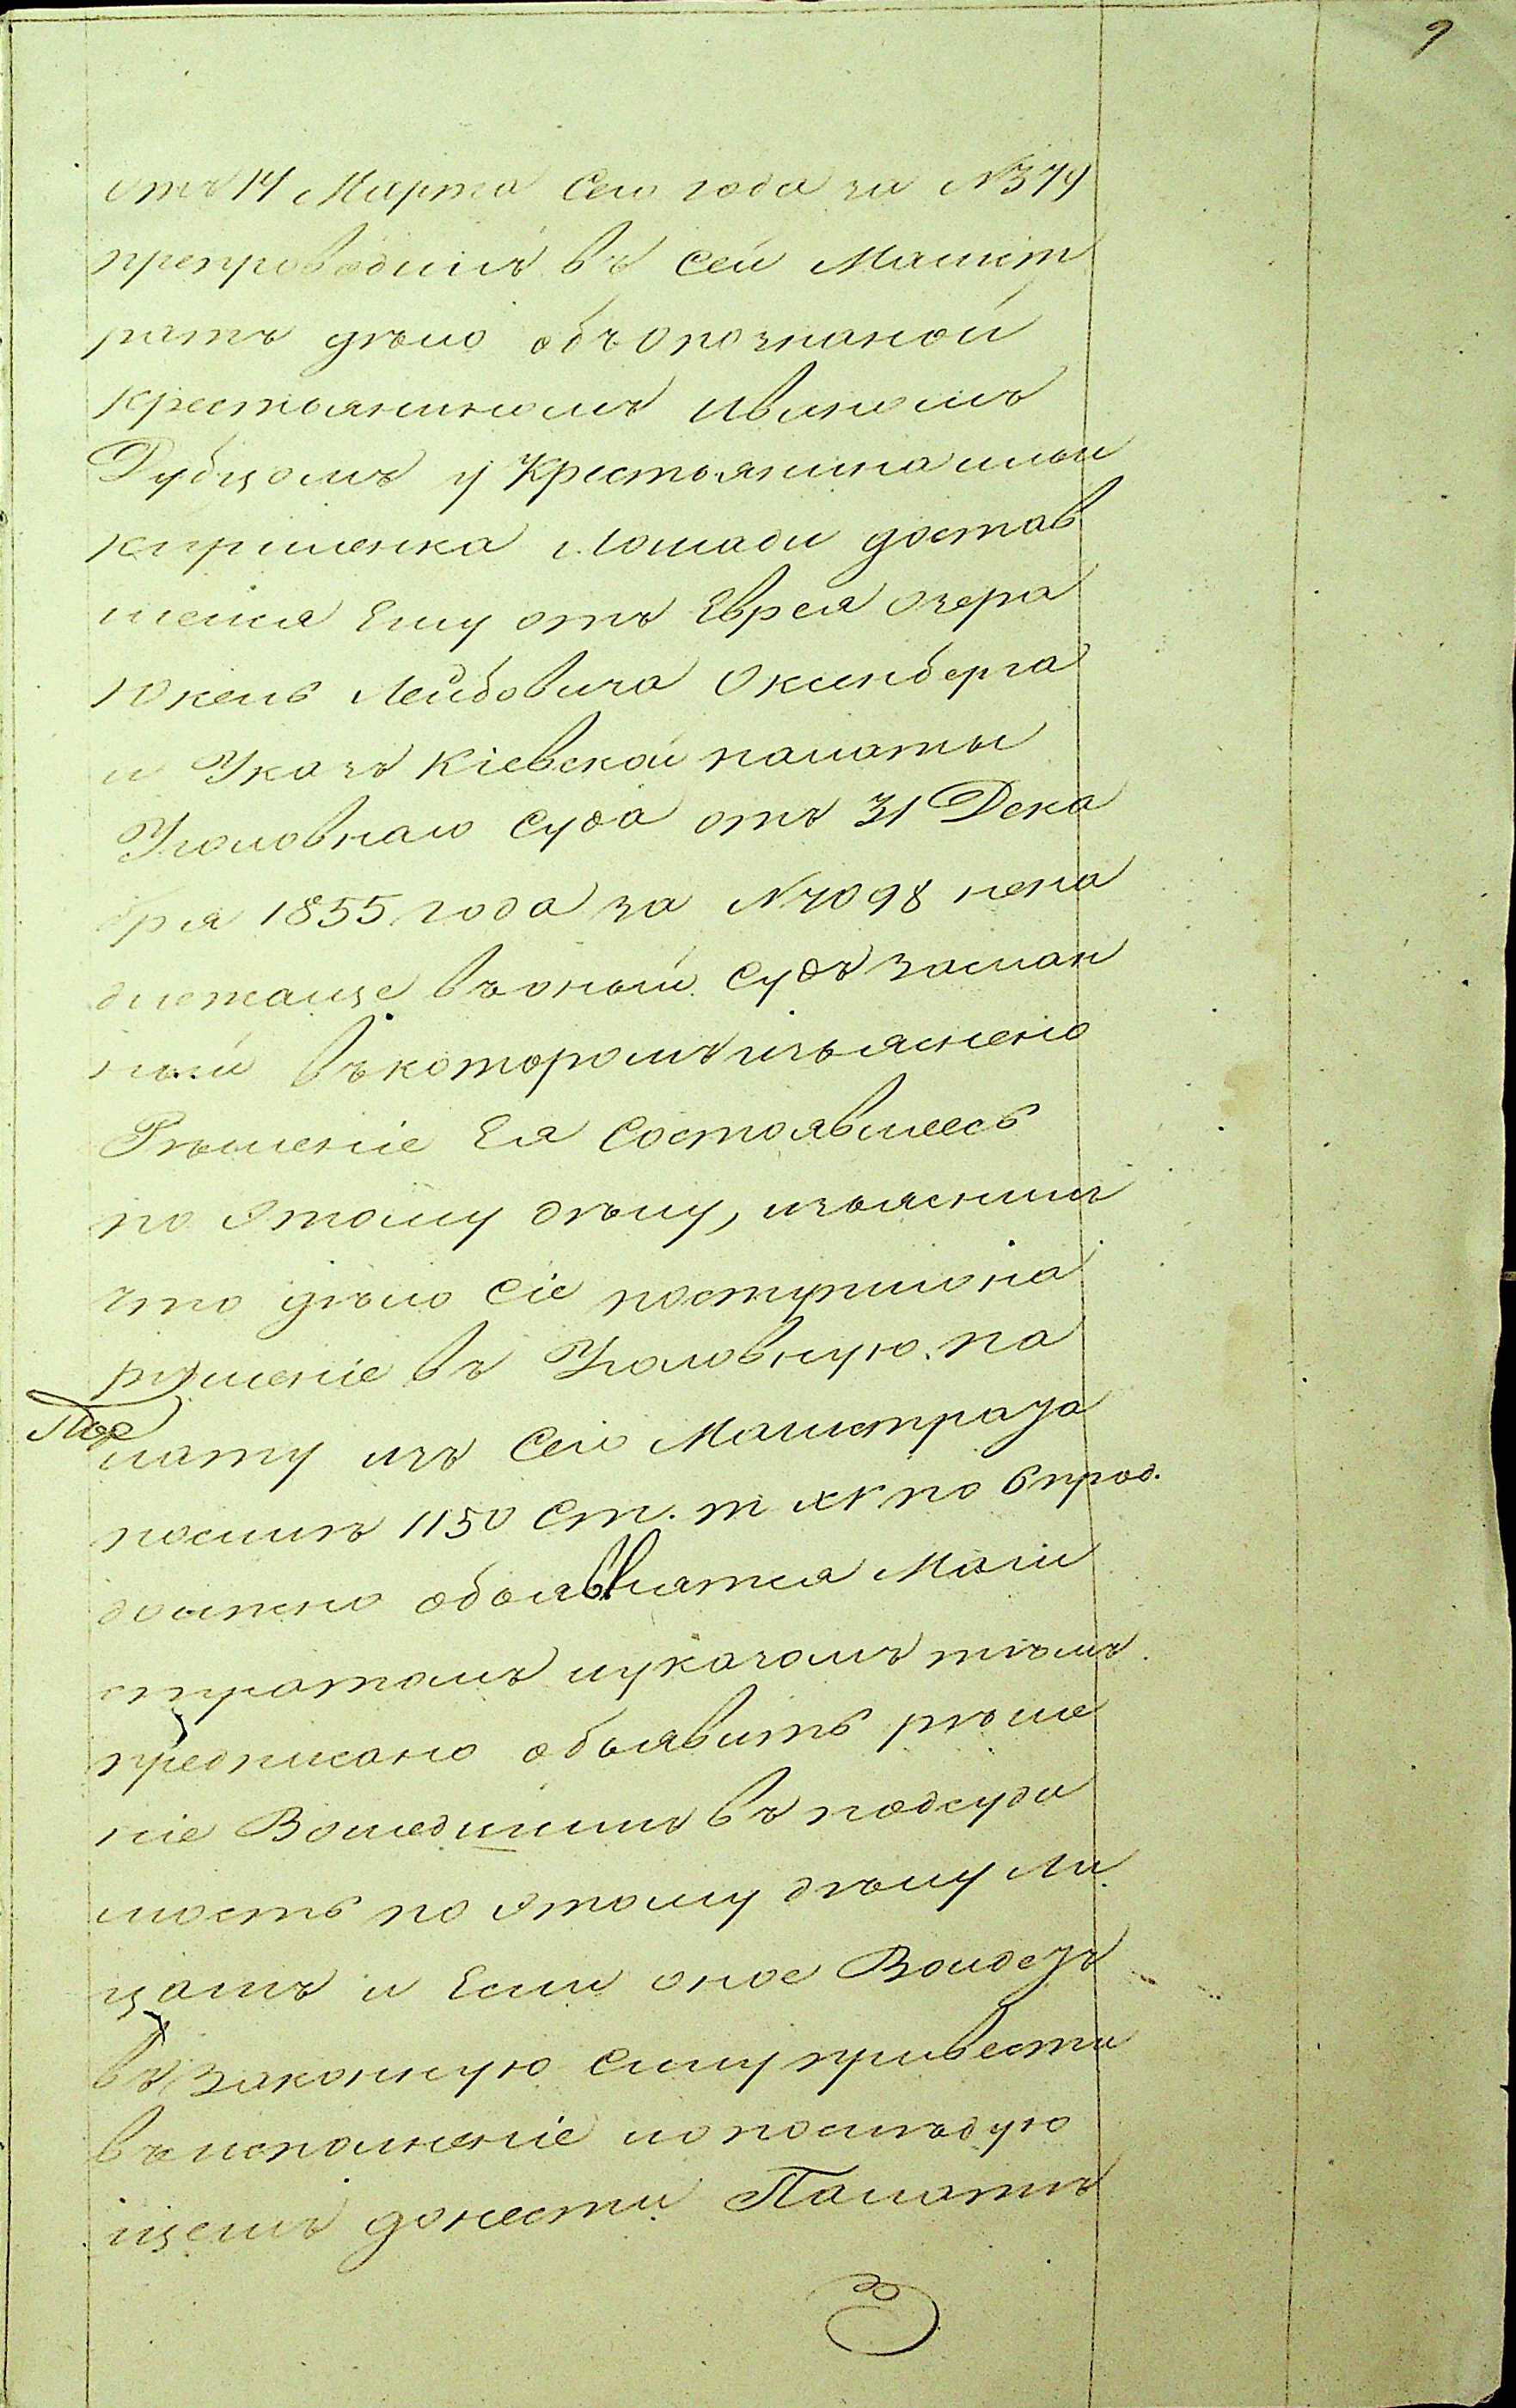 9
отъ 14 Марта сего года за №379
препроводилъ въ сей Магист
ратъ дѣло объ опознаной
крестьяниномъ Иваномъ
Рубцомъ у Крестьянина Ильи
Кириленка Лошади достав
шейся Ему отъ Еврея Озера
Юкель Лейбовича Оксенберга
и Указъ Кіевской палаты
Уголовнаго Суда отъ 31 Дека
бря 1855 года за №7098 непа
длежаще въ оный Судъ заслан
ный въ которомъ изъяснено
Рѣшеніе Ея Состоявшеесь
по этому дѣлу, изъяснилъ
что дѣло сіе поступило на
рѣшеніе въ Уголовную па
лату изъ Сего Магистрата
Пое
послику 1150 Ст. т XV по 6 прод.
должно объявлятся Маги
стратомъ и указомъ тѣмъ
предписано объявить рѣше
ніе Вошедшимъ въ подсуди
мость по этому дѣлу Ли
цамъ и Если оное Войдетъ
въ законную Силу привести
въ исполненіе и о послѣдую
щемъ донести Палатѣ